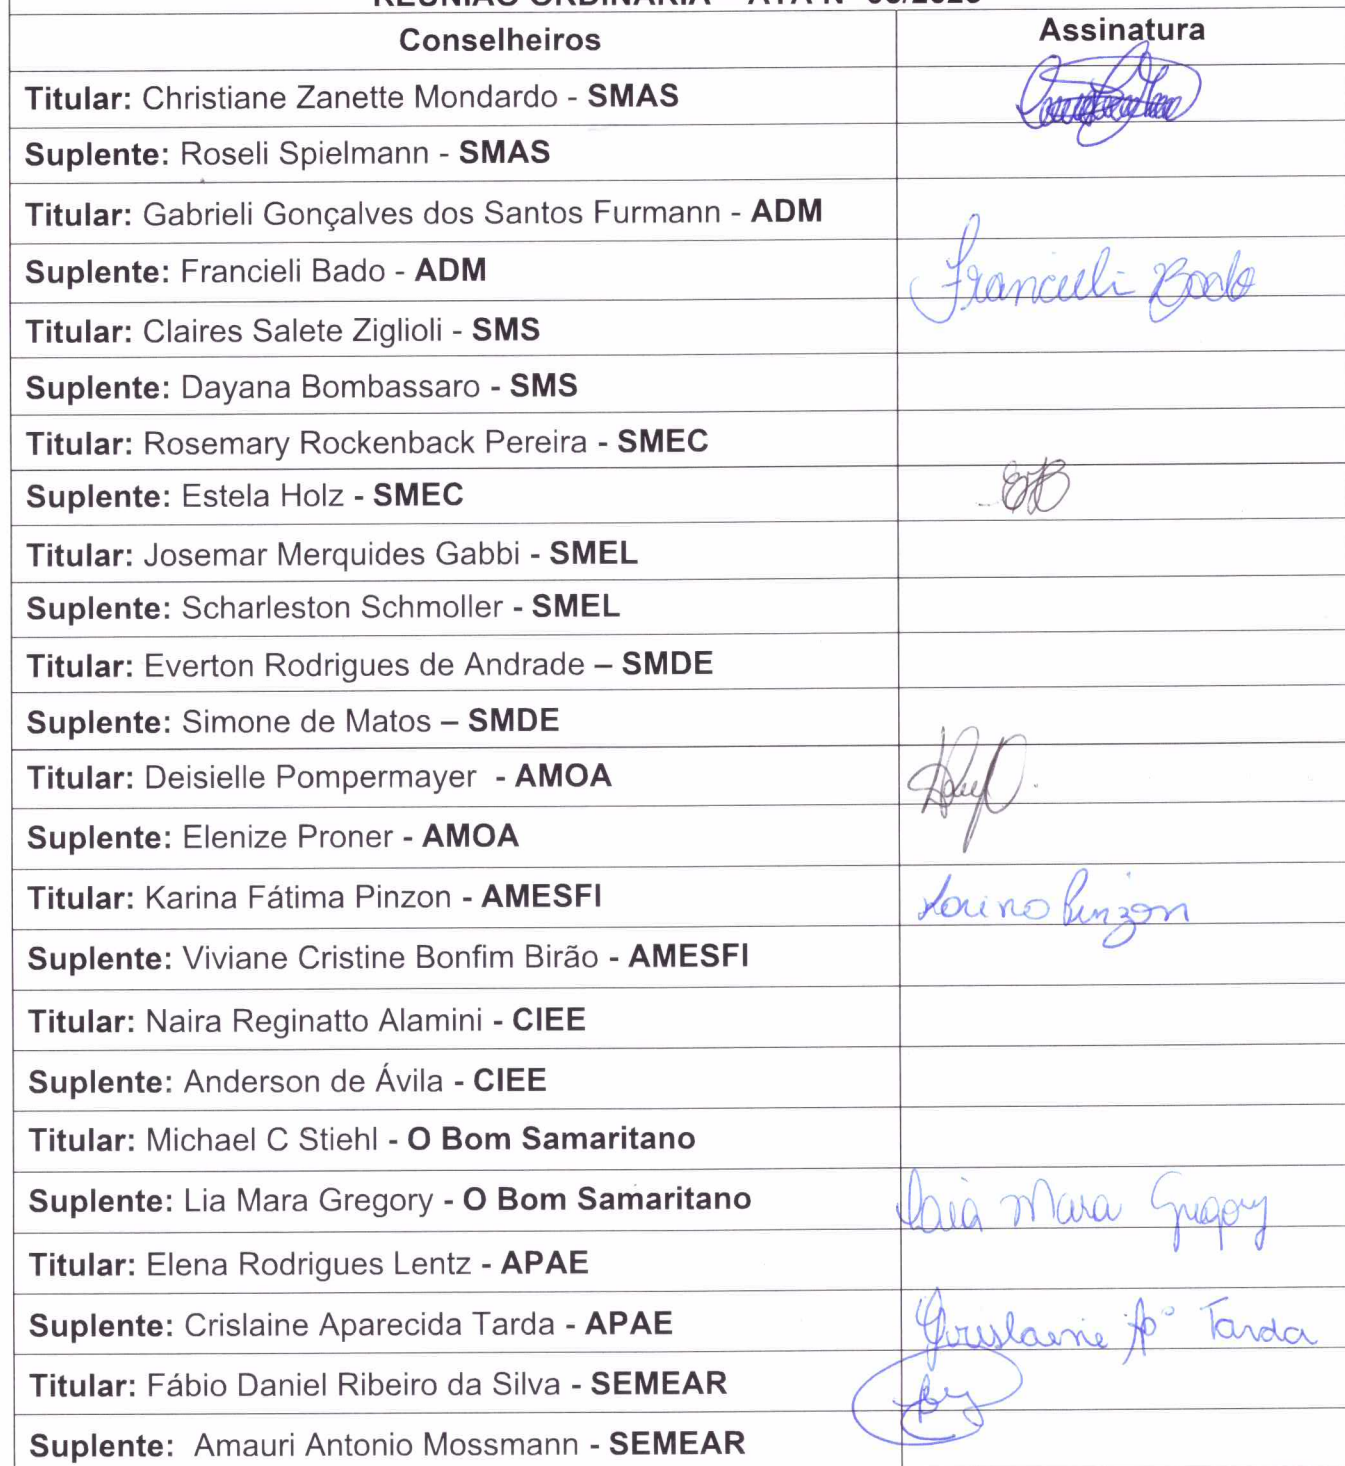 Conselheiros Assinatura
Titular: Christiane Zanette Mondardo - SMAS
Suplente: Roseli Spielmann - SMAS
Titular: Gabrieli Gonçalves dos Santos Furmann - ADM
Suplente: Francieli Bado - ADM Francieli Bado
Titular: Claires Salete Ziglioli - SMS
Suplente: Dayana Bombassaro - SMS
Titular: Rosemary Rockenback Pereira - SMEC
Suplente: Estela Holz - SMEC
Titular: Josemar Merquides Gabbi - SMEL
Suplente: Scharleston Schmoller - SMEL
Titular: Everton Rodrigues de Andrade – SMDE
Suplente: Simone de Matos – SMDE
Titular: Deisielle Pompermayer - AMOA
Suplente: Elenize Proner - AMOA
Titular: Karina Fátima Pinzon - AMESFI Karina Pinzon
Suplente: Viviane Cristine Bonfim Birão - AMESFI
Titular: Naira Reginatto Alamini - CIEE
Suplente: Anderson de Ávila - CIEE
Titular: Michael C Stiehl - O Bom Samaritano
Suplente: Lia Mara Gregory - O Bom Samaritano Lia Mara Gregory
Titular: Elena Rodrigues Lentz - APAE
Suplente: Crislaine Aparecida Tarda - APAE Crislaine Ap° Tarda
Titular: Fábio Daniel Ribeiro da Silva - SEMEAR
Suplente: Amauri Antonio Mossmann - SEMEAR